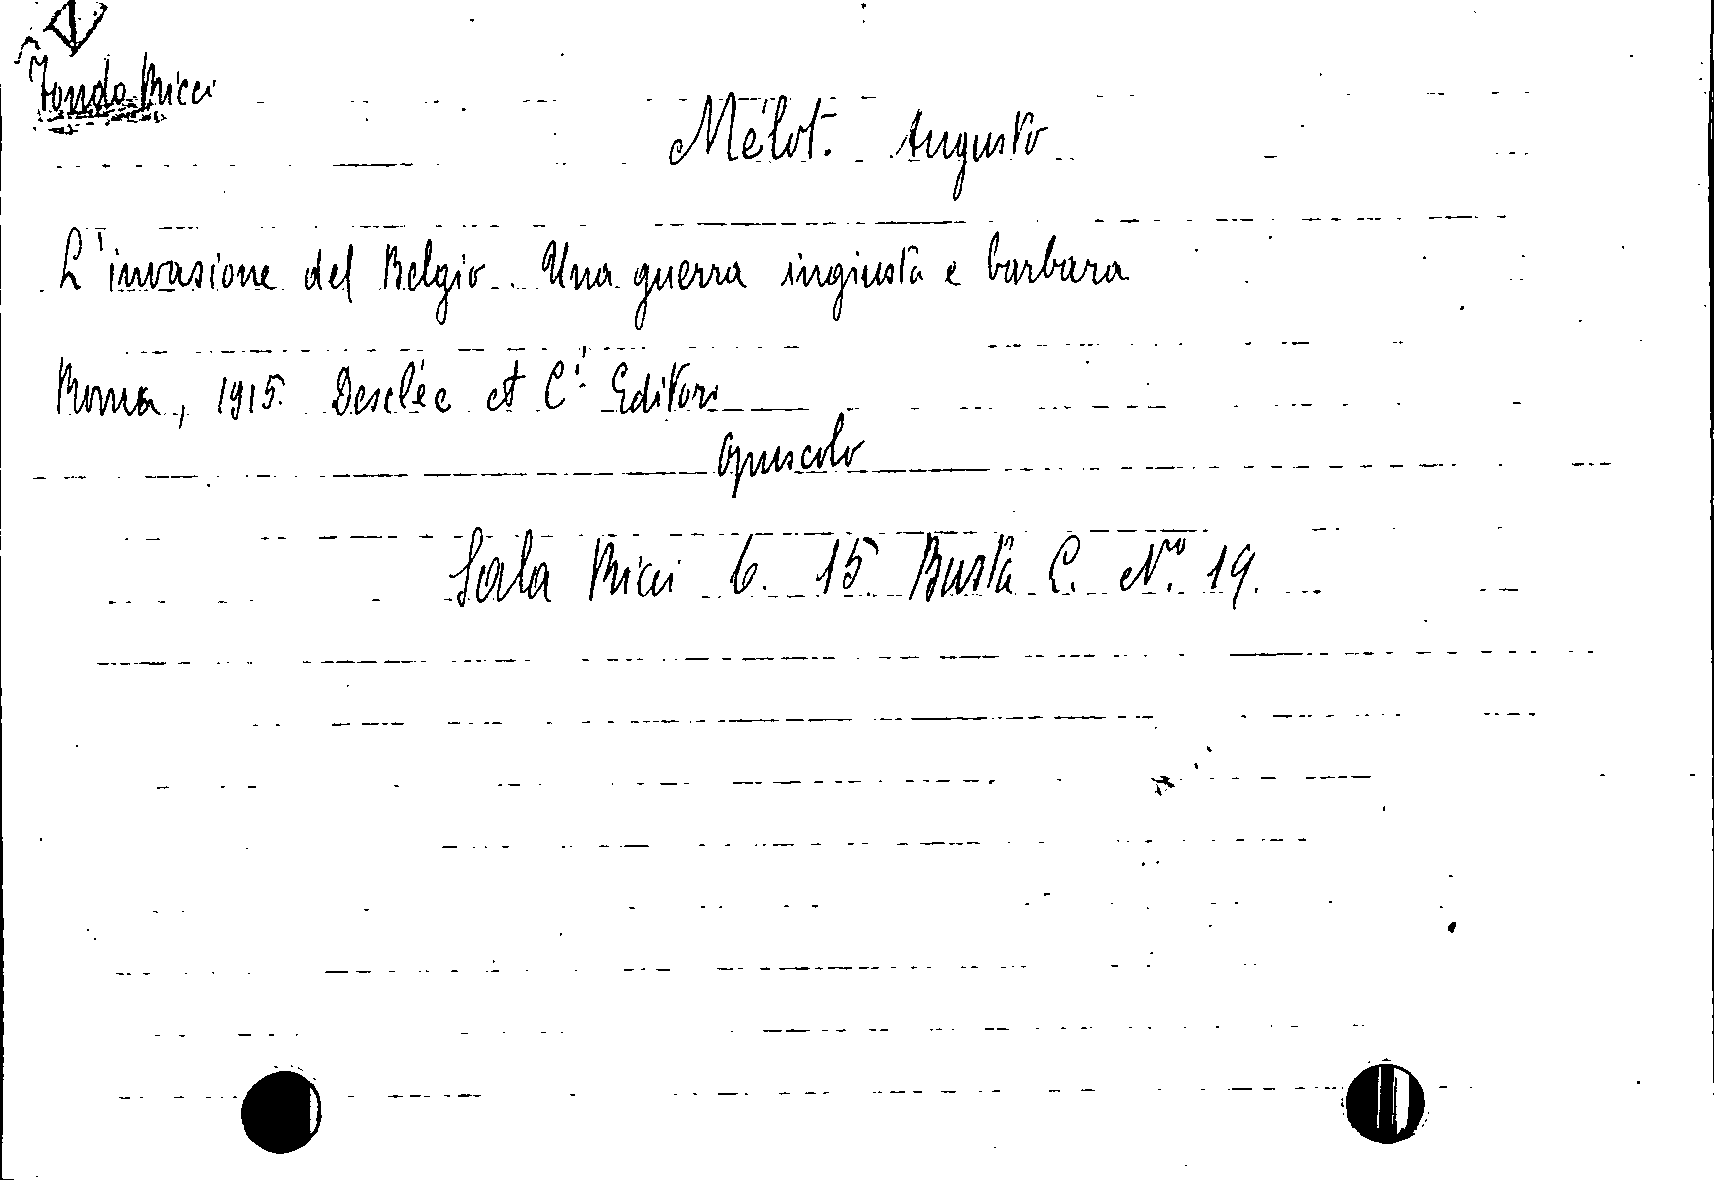 Fondo Ricci
Mélot. Augusto
L'invasione del Belgio. Una guerra ingiusta e barbara
Roma, 1915. Desclée et C.i Editori
opuscolo
Sala Ricci 6. 15. Busta C. N.ro 19.